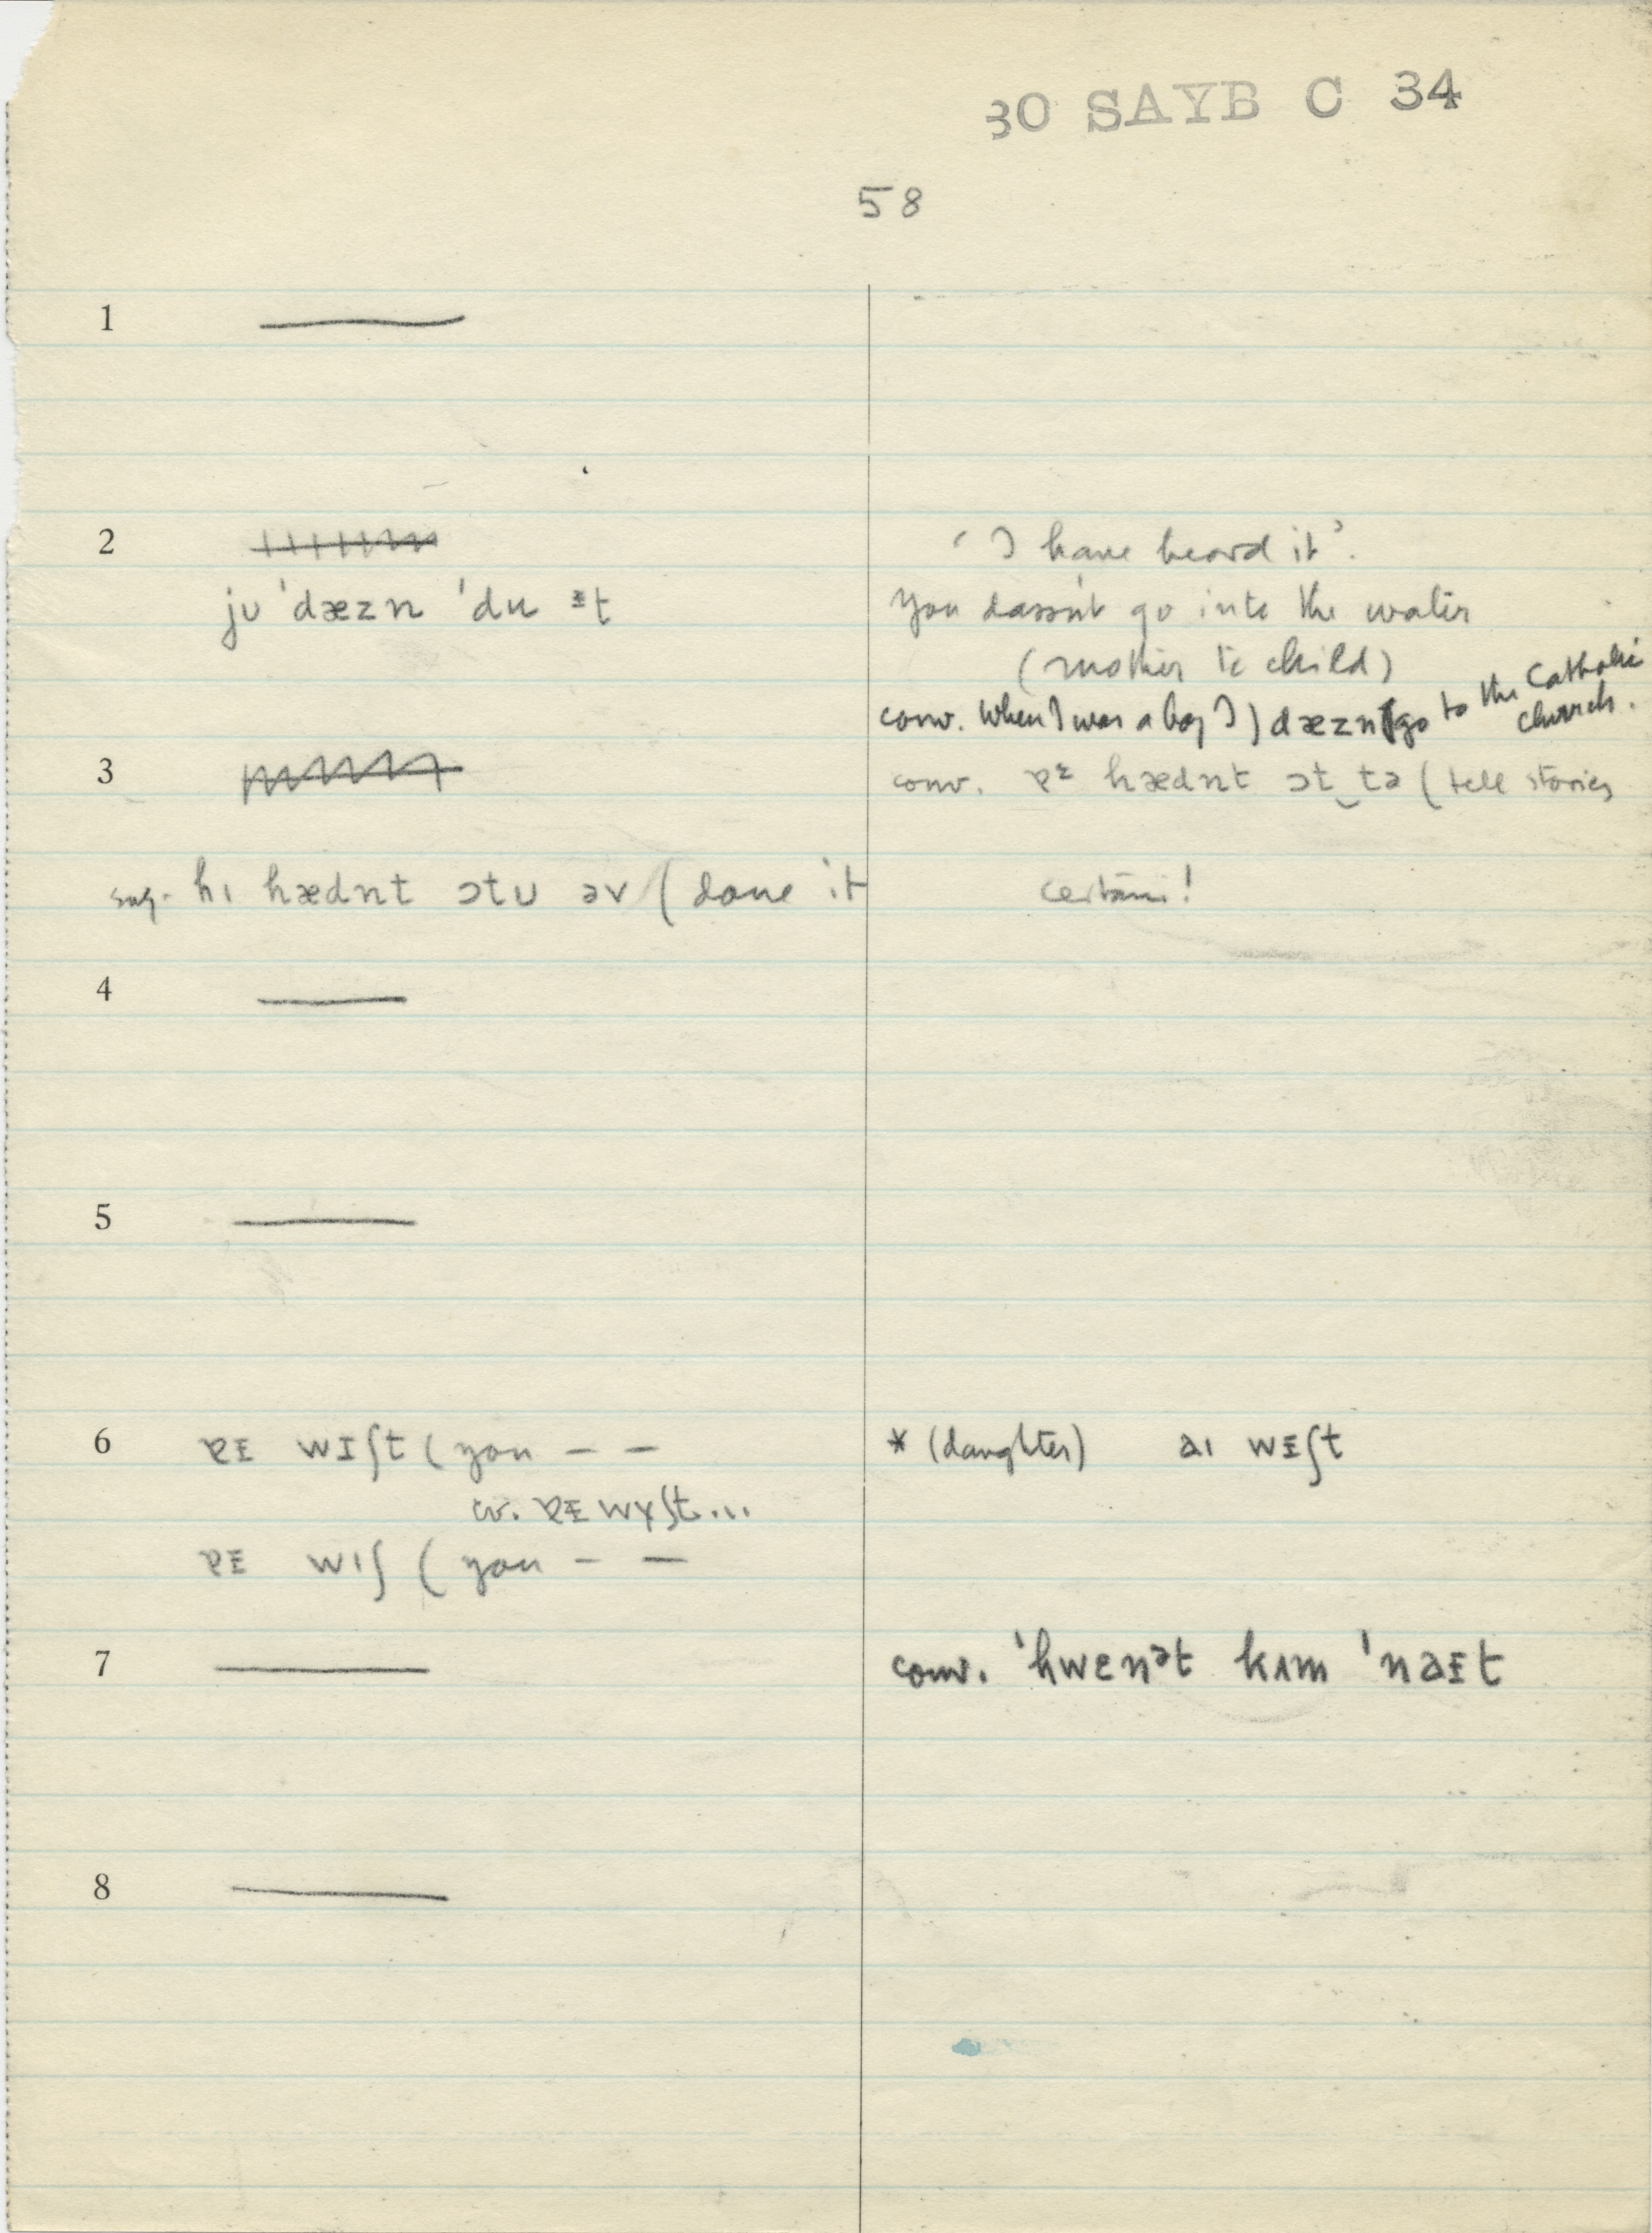 30 SAYB C 34
58
1
2 'I have heard it'.
jʊ 'dæzn 'du ᵻt
You dassn't go into the water
(mother to child)
conv. When I was a boy I) dæzn(go to the Catholic church.
3 conv. ɐᵻ hædnt ɔt‿tə (tell stories
sug. hɪ hædnt ɔtʊ əv (done it
certain!
4
5
6 ɐᵻ wɪʃt (you – – * (daughter) aɪ wᵻʃt
cv. ɐᵻ wʏʃt...
ɐᵻ wɪʃ (you – –
7 conv. 'hwenᵊt kʌm 'naᵻt
8